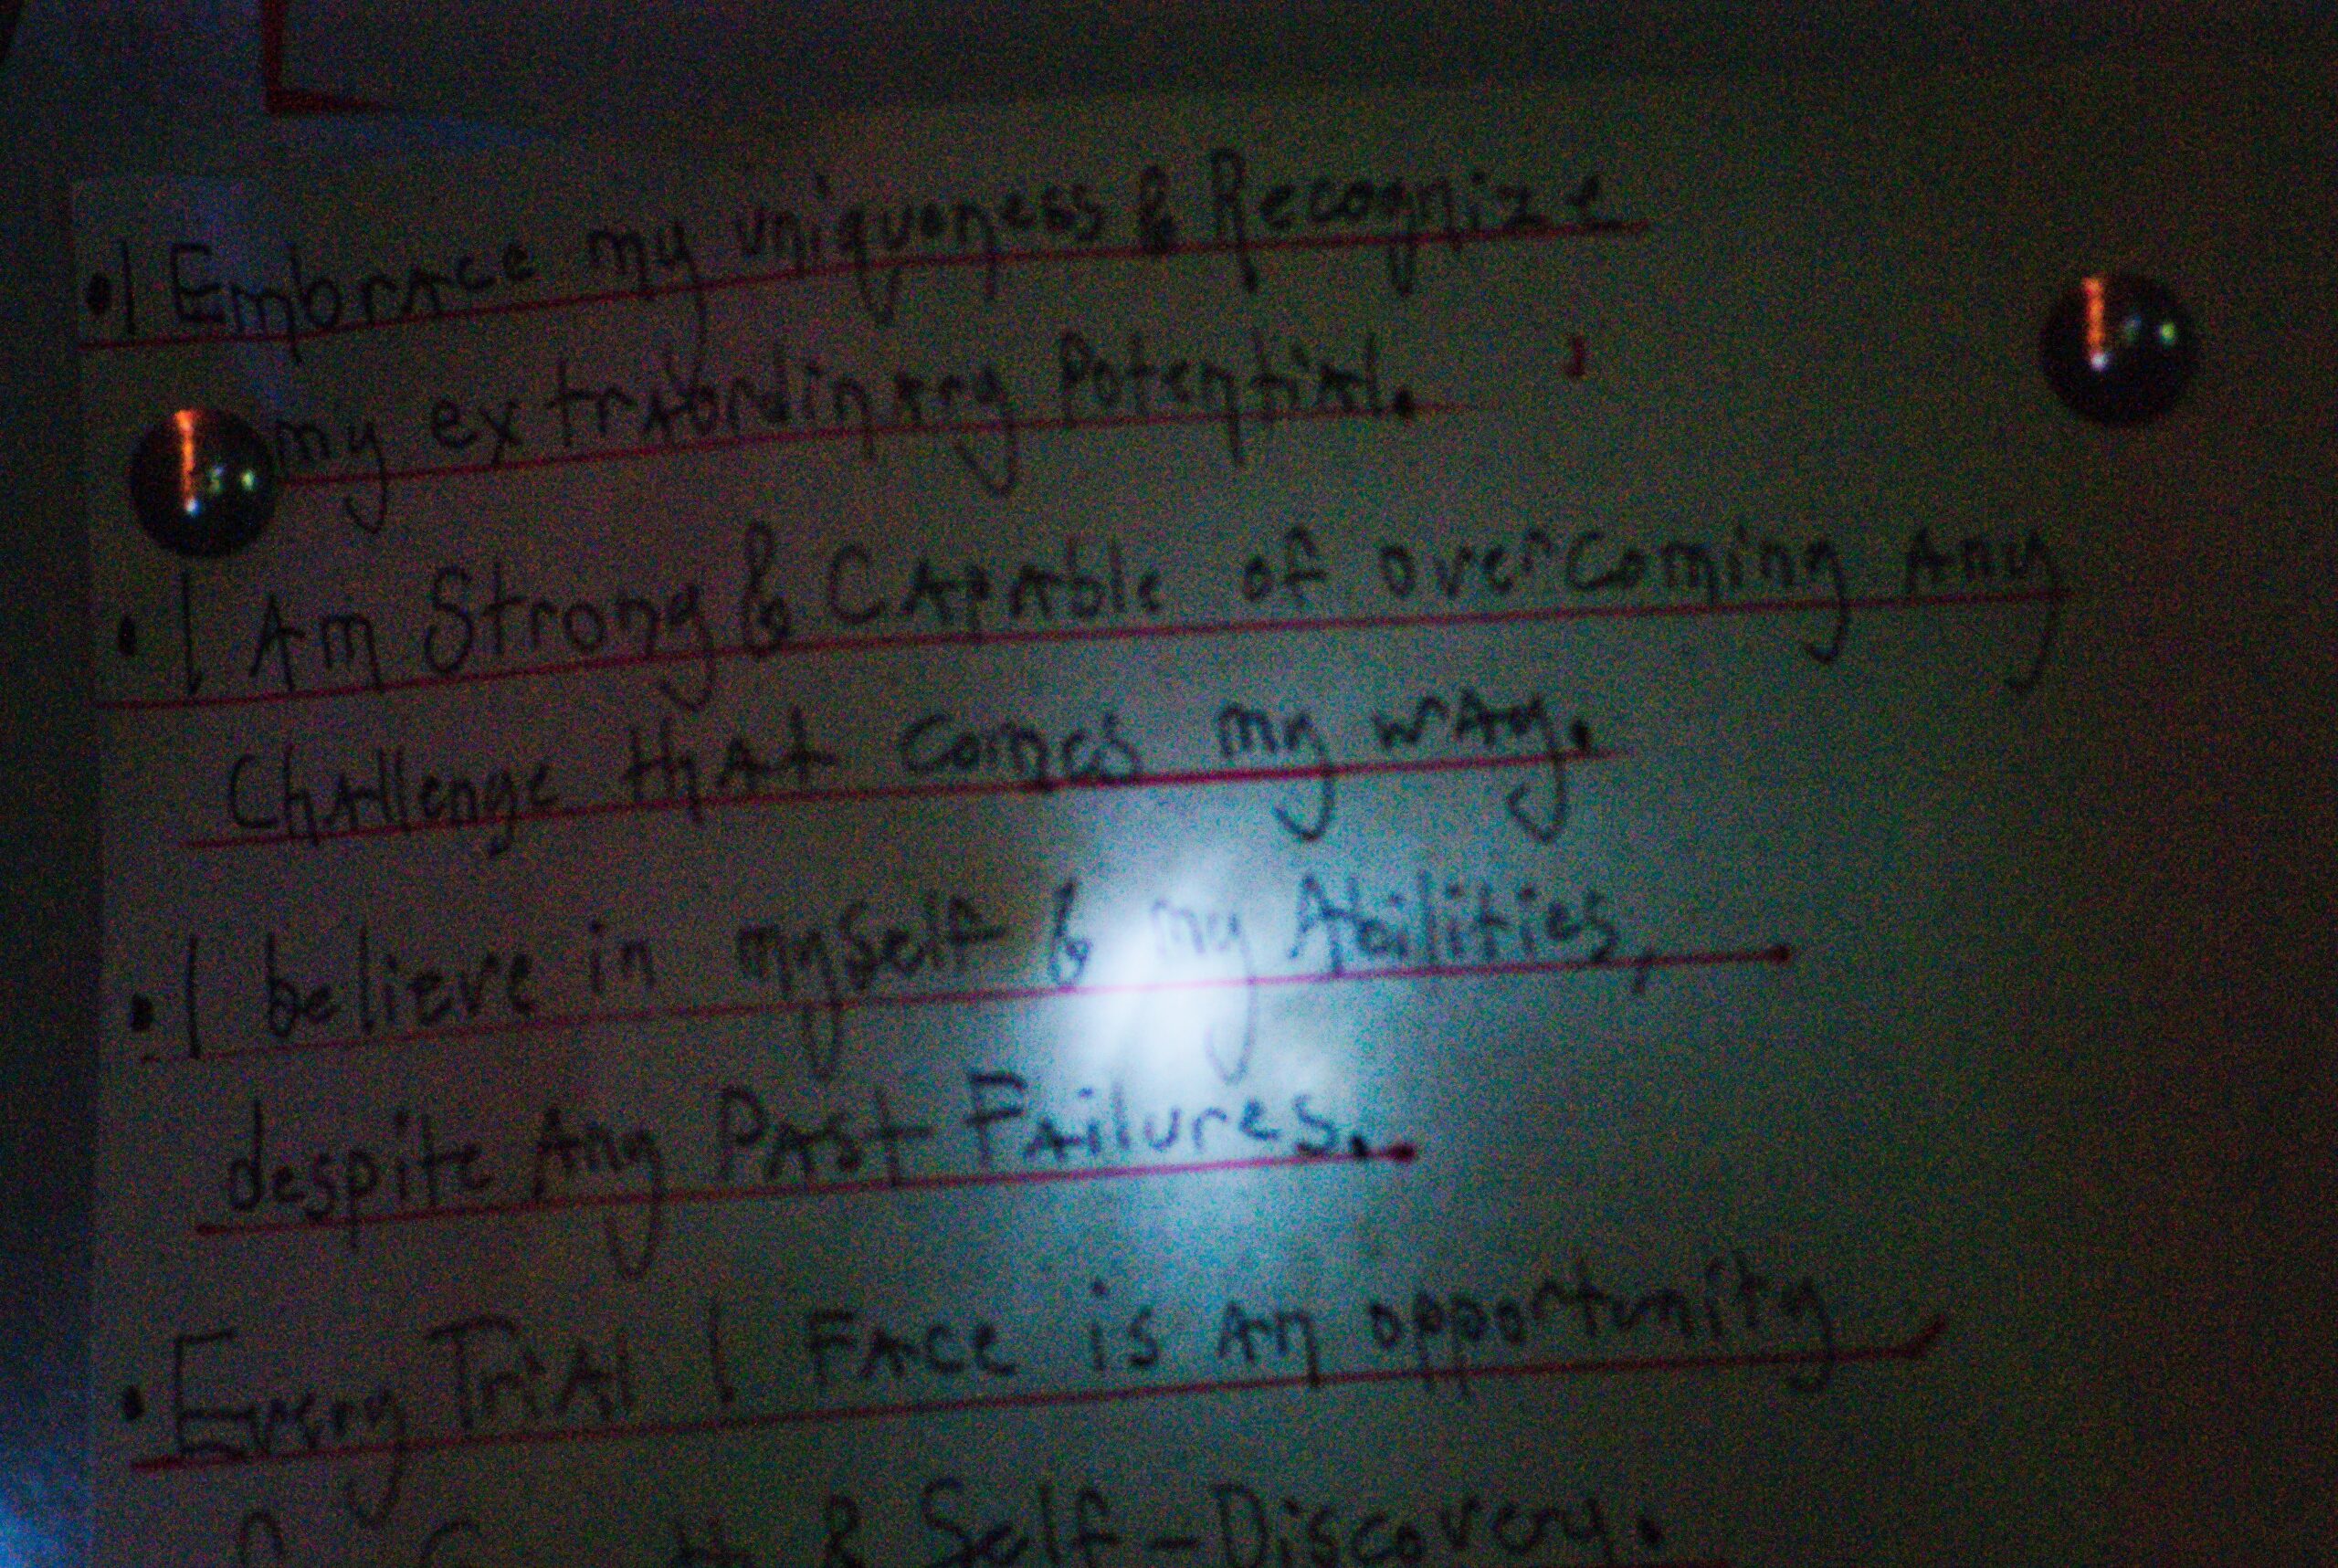 • I Embrace my uniqueness & Recognize
my extraordinary Potential.
• I Am Strong & Capable of overcoming Any
Challenge that comes my way.
• I believe in myself & my Abilities,
despite Any Past Failures.
• Every Trial I Face is An opportunity
& Self-Discovery.